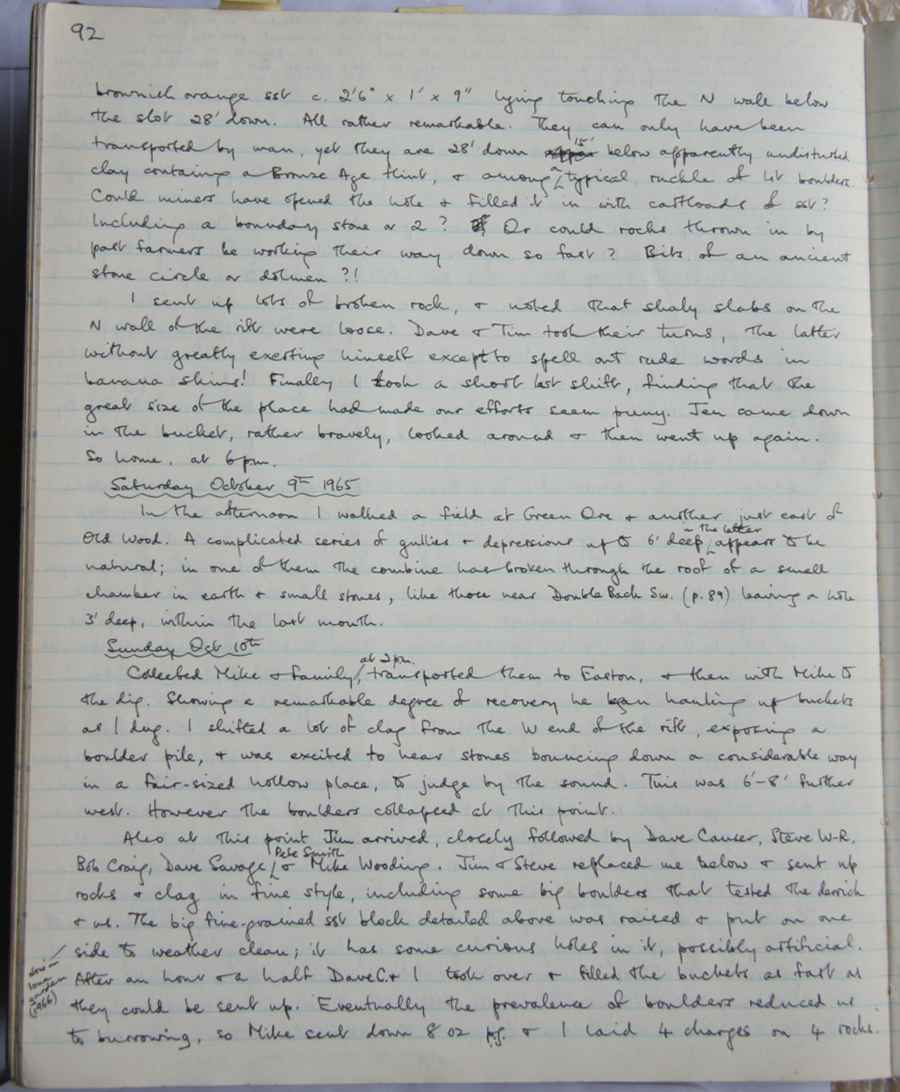 92
brownish orange sst c. 2'6" x 1' x 9" lying touching the N wall below
the slot 28' down. All rather remarkable. They can only have been
transported by man, yet they are 28' down 15' below apparently undisturbed
clay containing a Bronze Age flint, & among typical ruckle of lst boulders.
Could miners have opened the hole & filled it in with cartloads of sst?
Including a boundary stone or 2? Or could rocks thrown in by
past farmers be working their way down so fast? Bits of an ancient
stone circle or dolmen?!
I sent up lots of broken rock, & noted that shaly slabs on the
N wall of the rift were loose. Dave & Tim took their turns, the latter
without greatly exerting himself except to spell out rude words in
banana skins! Finally I took a short last shift, finding that the
great size of the place had made our efforts seem puny. Jen came down
in the bucket, rather bravely, looked around & then went up again.
So home, at 6pm.
Saturday October 9th 1965
In the afternoon I walked a field at Green Ore & another just east of
Old Wood. A complicated series of gullies & depressions up to 6' deep in the latter appears to be
natural; in one of them the combine has broken through the roof of a small
chamber in earth & small stones, like those near Double Back Sw. (p.89) leaving a hole
3' deep, within the last month.
Sunday Oct 10th
Collected Mike & family at 2pm, transported them to Easton, & then with Mike to
the dig. Showing a remarkable degree of recovery he began hauling up buckets
as I dug. I shifted a lot of clag from the W end of the rift, exposing a
boulder pile, & was excited to hear stones bouncing down a considerable way
in a fair-sized hollow place, to judge by the sound. This was 6'-8' further
west. However the boulders collapsed at this point.
Also at this point Jim arrived, closely followed by Dave Causer, Steve W-R,
Bob Craig, Dave Savage, Pete Smith & Mike Wooding. Jim & Steve replaced me below & sent up
rocks & clag in fine style, including some big boulders that tested the derrick
& us. The big fine-grained sst block detailed above was raised & put on one
side to weather clean; it has some curious holes in it, possibly artificial.
now in
garden
(1966)
After an hour & a half Dave C. & I took over & filled the buckets as fast as
they could be sent up. Eventually the prevalence of boulders reduced us
to burrowing, so Mike sent down 8 oz pg. & I laid 4 charges on 4 rocks.